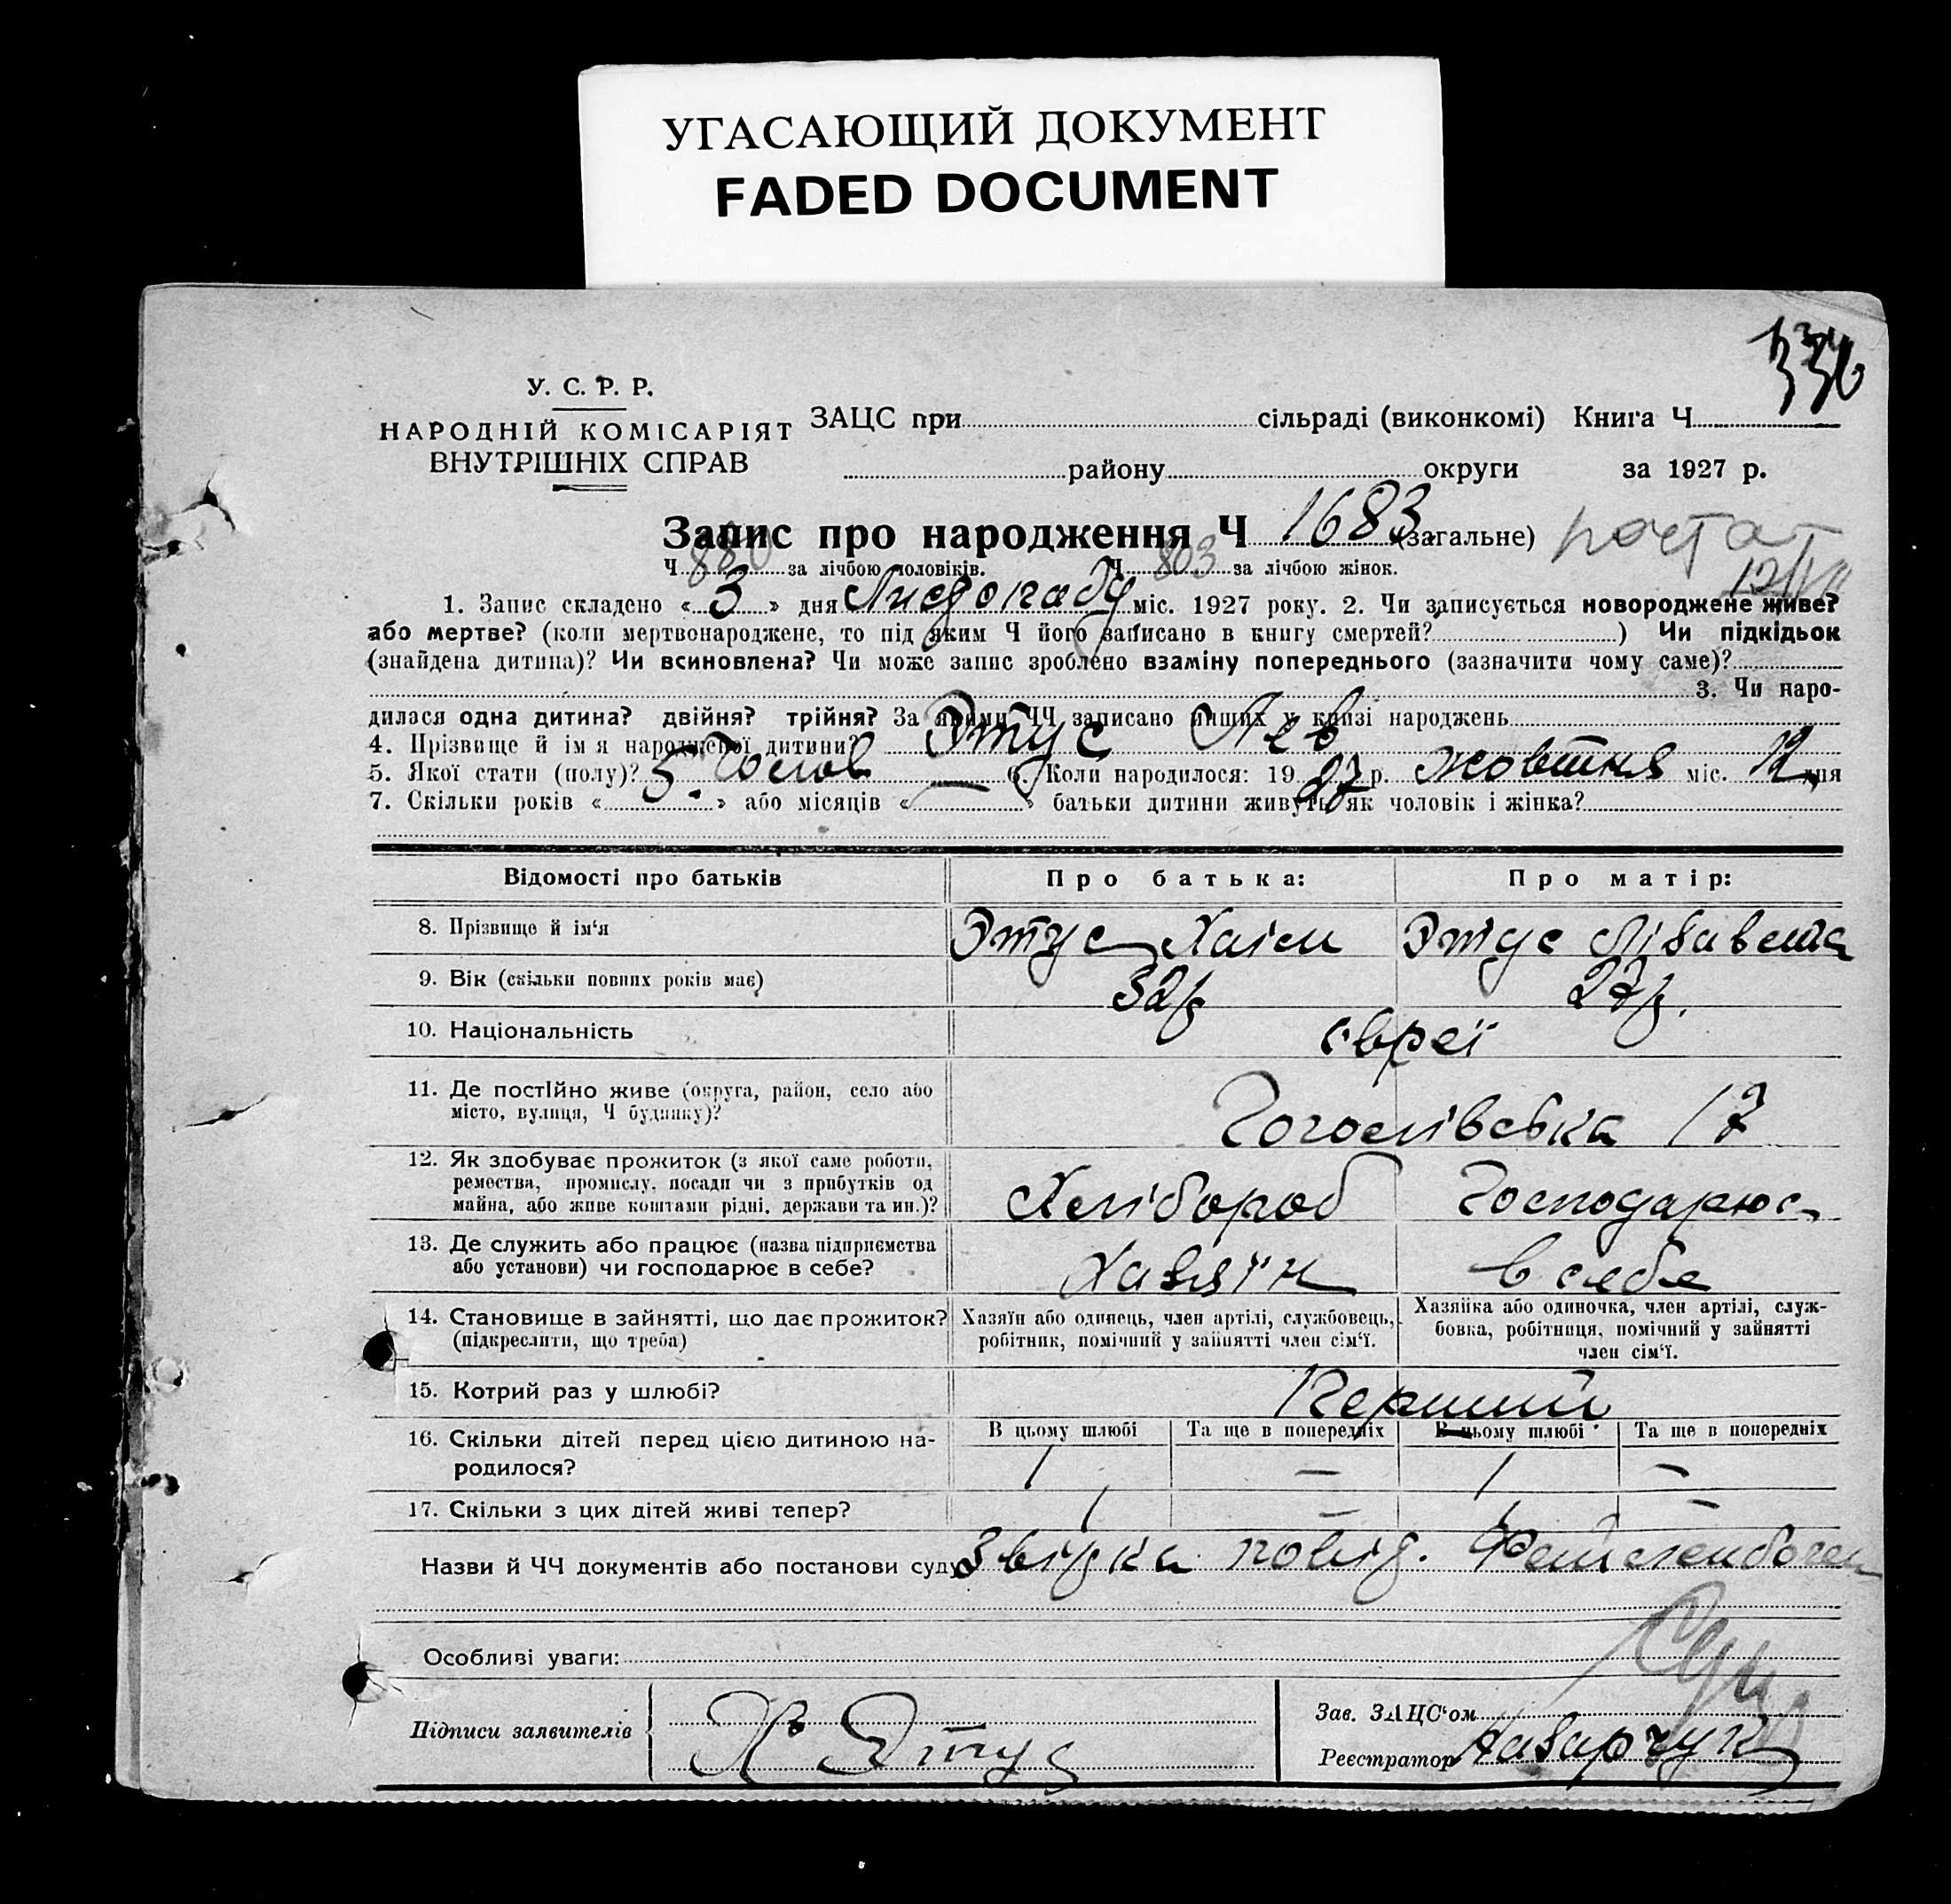 УГАСАЮЩИЙ ДОКУМЕНТ
FADED DOCUMENT
336
У. С. Р. Р.
НАРОДНІЙ КОМІСАРІЯТ
ВНУТРІШНІХ СПРАВ
ЗАЦС при сільраді (виконкомі) Книга Ч
району округи за 1927 р.
Запис про народження Ч 1683 (загальне)
Ч 880 за лічбою чоловіків. Ч 803 за лічбою жінок.
1. Запис складено « 3 » дня Листопаду міс. 1927 року. 2. Чи записується новороджене живе?
або мертве? (коли мертвонароджене, то під яким Ч його записано в книгу смертей? ) Чи підкідьок
(знайдена дитина)? Чи всиновлена? Чи може запис зроблено взаміну попереднього (зазначити чому саме)?
3. Чи наро-
дилася одна дитина? двійня? трійня? За якими ЧЧ записано инших у книзі народжень
4. Прізвище й ім я народженої дитини? Этус Лев
5. Якої стати (полу)? Чолов 6. Коли народилося: 19 27 р. жовтня міс. 12 дня
7. Скільки років « 5 » або місяців « — » батьки дитини живуть як чоловік і жінка?
Відомості про батьків
Про батька:
Про матір:
8. Прізвище й ім‘я
Этус Хаім
Этус Лізавета
9. Вік (скільки повних років має)
32 р
27 р.
10. Національність
євреї
11. Де постійно живе (округа, район, село або
місто, вулиця, Ч будинку)?
Гоголівська 17
12. Як здобуває прожиток (з якої саме роботи,
ремества, промислу, посади чи з прибутків од
майна, або живе коштами рідні, держави та ин.)?
Хлібороб
Господарює
13. Де служить або працює (назва підприємства
або установи) чи господарює в себе?
Хазяїн
в себе
14. Становище в зайнятті, що дає прожиток?
(підкреслити, що треба)
Хазяїн або одинець, член артілі, службовець,
робітник, помічний у зайнятті член сім‘ї.
Хазяйка або одиночка, член артілі, служ-
бовка, робітниця, помічний у зайнятті
член сім‘ї.
15. Котрий раз у шлюбі?
Перший
16. Скільки дітей перед цією дитиною на-
родилося?
В цьому шлюбі
Та ще в попередніх
В цьому шлюбі
Та ще в попередніх
1 — 1 —
17. Скільки з цих дітей живі тепер?
1 — 1 —
Назви й ЧЧ документів або постанови суду
Особливі уваги:
Підписи заявителів
Х Этус
Зав. ЗАЦС‘ом
Реєстратор Назарчук